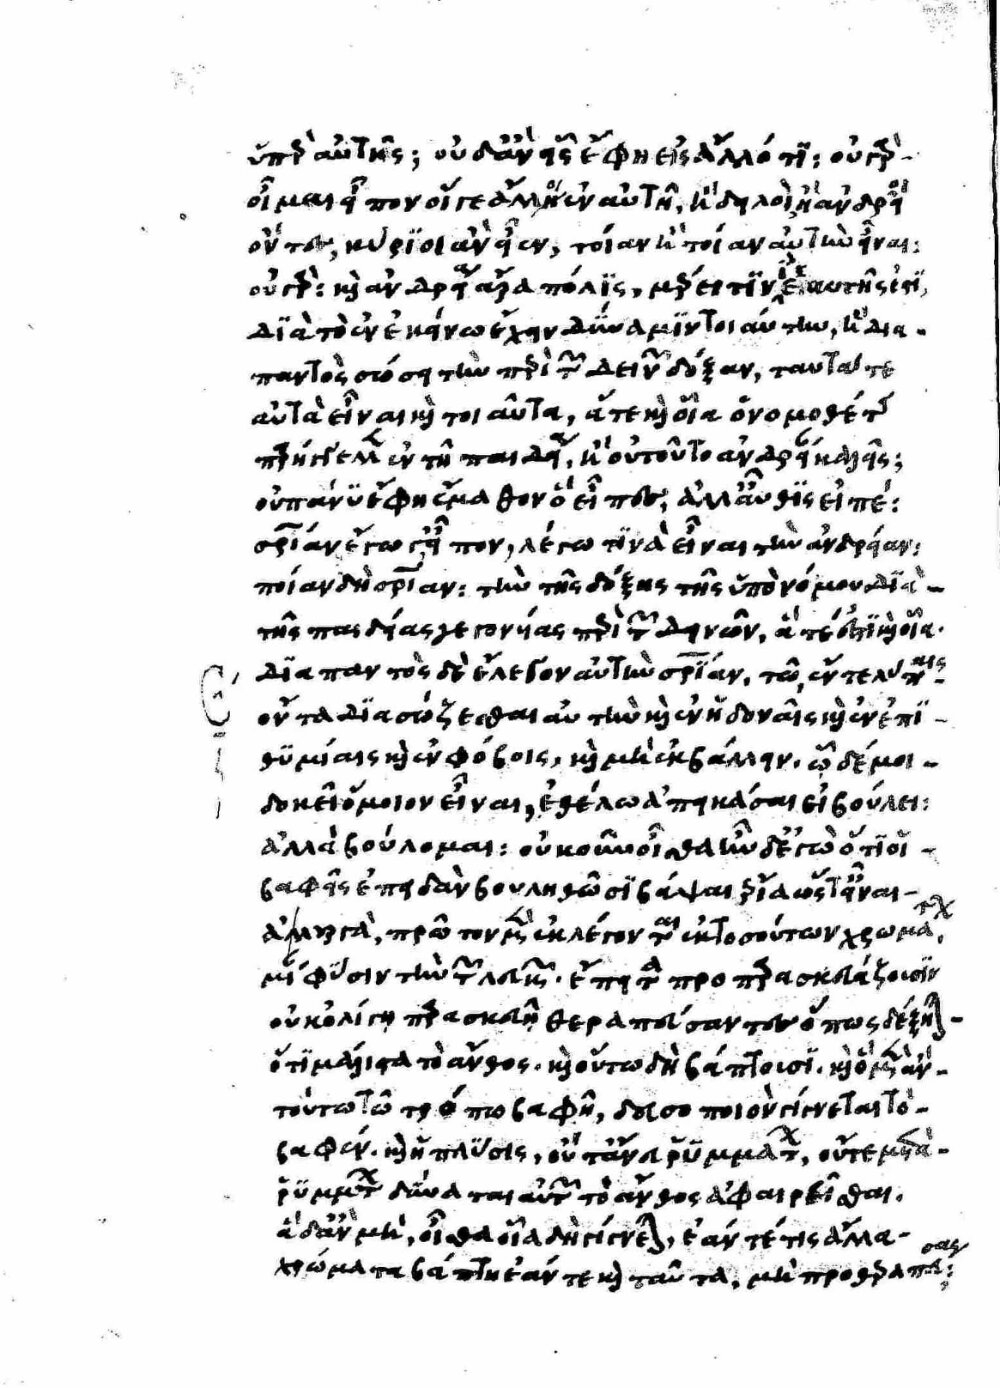 ὑπὲρ αὐτῆς; οὐδ' ἂν εἷς ἔφη εἰς ἄλλό τι: οὐ γὰρ
οἶμαι εἶπον οἵ γε ἄλλοι ἐν αὐτῇ, ἢ δειλοὶ ἢ ἀνδρεῖοι
ὄντες, κύριοι ἂν εἶεν, τοίαν ἢ τοίαν αὐτὴν εἶναι:
οὐ γάρ: καὶ ἀνδρεία ἄρα πόλις, μέρει τινὶ ἑαυτῆς ἐστί,
διὰ τὸ ἐν ἐκείνω ἔχειν δύναμιν τοιαύτην, ἣ διὰ
παντὸς σώσει τὴν περὶ τῶν δεινῶν δόξαν, ταῦτά τε
αὐτὰ εἶναι καὶ τοιαῦτα, ἅ τε καὶ οἷα ὁ νομοθέτης
παρήγγελλεν ἐν τῇ παιδείᾳ, ἢ οὐ τοῦτο ἀνδρείαν καλεῖς;
οὐ πάνυ ἔφη ἔμαθον ὃ εἶπες; ἀλλ' αὖθις εἰπέ:
σωτηρίαν ἔγωγ' εἶπον, λέγω τινὰ εἶναι τὴν ἀνδρείαν:
ποίαν δὴ σωτηρίαν: τὴν τῆς δόξης τῆς ὑπὸ νόμου διὰ
τῆς παιδείας γεγονυίας περὶ τῶν δεινῶν, ἅ τέ ἐστι καὶ οἷα.
διὰ παντὸς δὲ ἔλεγον αὐτὴν σωτηρίαν, τῶ, ἔν τε λύπαις
ὄντα διασώζεσθαι αὐτὴν καὶ ἐν ἡδοναῖς καὶ ἐν ἐπι
θυμίαις καὶ ἐν φόβοις, καὶ μὴ ἐκβάλλειν. ᾧ δέ μοι
δοκεῖ ὅμοιον εἶναι, ἐθέλω ἀπεικάσαι εἰ βούλει:
ἀλλὰ βούλομαι: οὐκοῦν οἶσθα ἦν δ' ἐγὼ ὅτι οἱ
βαφῆς ἐπειδὰν βουληθῶσι βάψαι ἔρια ὥστ' εἶναι
ἁλουργὰ, πρῶτον μὲν ἐκλέγονται ἐκ τοσούτων χρωμάτων
μίαν φύσιν τὴν τῶν λευκῶν. ἔπειτα προπαρασκευάζουσιν
οὐκ ὀλίγη παρασκευῇ θεραπεύσαντες ὅπως δέξηται
ὅτι μάλιστα τὸ ἄνθος. καὶ οὕτω δὴ βάπτουσι. καὶ ὃ μὲν ἂν
τούτω τῶ τρόπω βαφῇ, δευσοποιὸν γίγνεται τὸ
βαφέν. καὶ ἡ πλύσις, οὔτ' ἄνευ ῥυμμάτων, οὔτε μετὰ
ῥυμμάτων δύναται αὐτῶν τὸ ἄνθος ἀφαιρεῖσθαι.
ἃ δ' ἂν μὴ, οἶσθα οἷα δὴ γίγνεται, ἐάν τέ τις ἄλλα
χρώματα βάπτη ἐάν τε καὶ ταῦτα, μὴ προθεραπεύσας: